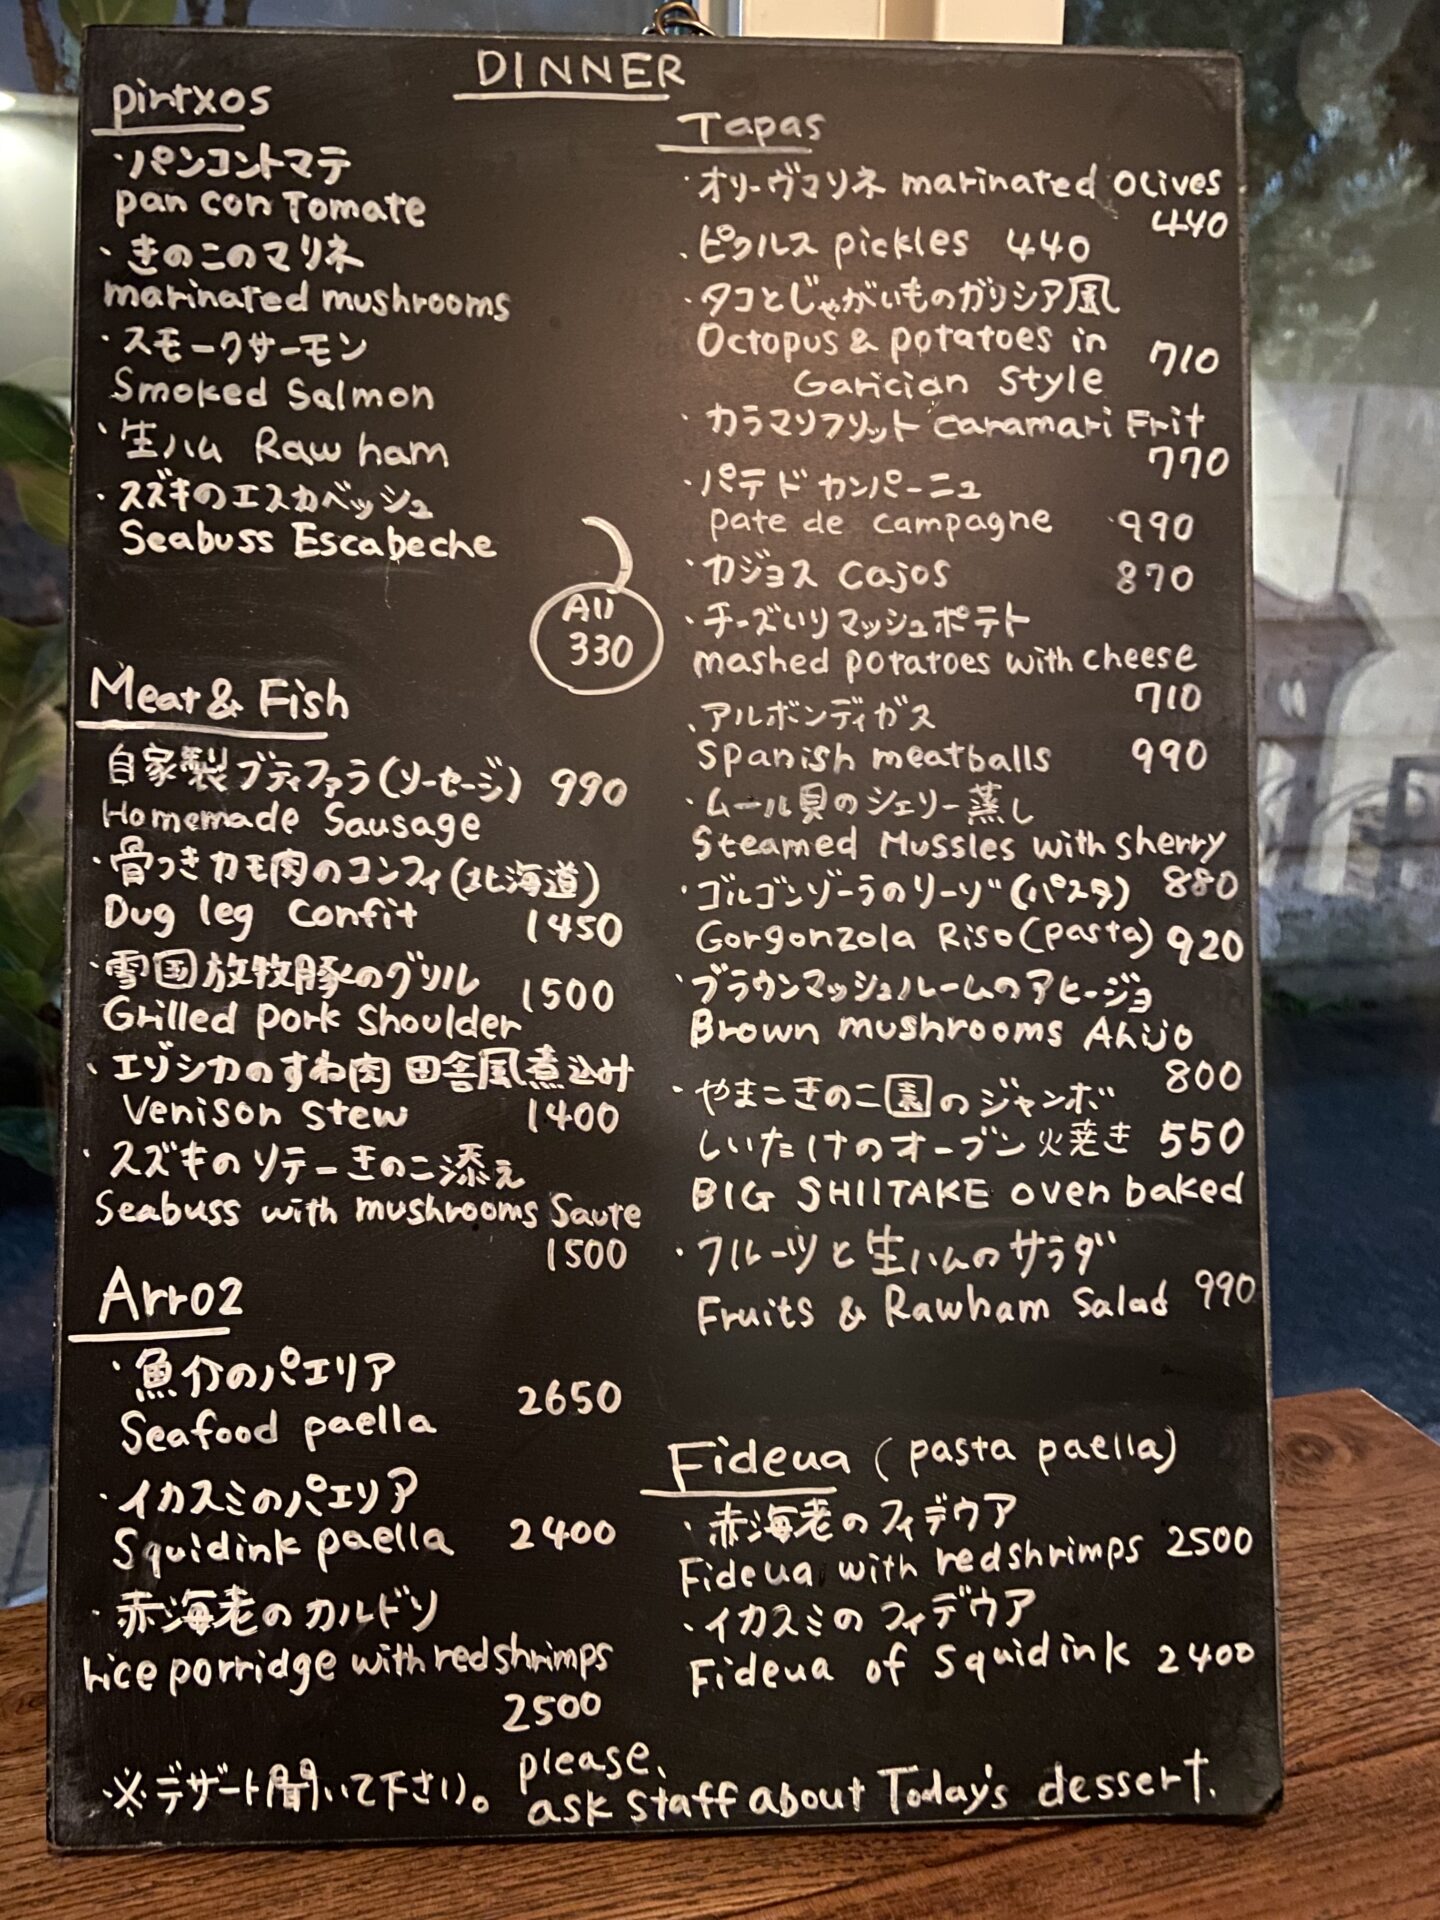 DINNER
pintxos
・パンコントマテ
pan con Tomate
・きのこのマリネ
marinated mushrooms
・スモークサーモン
Smoked Salmon
・生ハム Raw ham
・スズキのエスカベッシュ
Seabuss Escabeche
All
330
Meat & Fish
自家製ブティファラ(ソーセージ) 990
Homemade Sausage
・骨つきカモ肉のコンフィ(北海道)
Dug leg confit 1450
・雪国放牧豚のグリル
Grilled pork shoulder 1500
・エゾシカのすね肉 田舎風煮込み
Venison stew 1400
・スズキのソテーきのこ添え
Seabuss with mushrooms Saute
1500
Arroz
・魚介のパエリア
Seafood paella 2650
・イカスミのパエリア
Squidink paella 2400
・赤海老のカルドソ
rice porridge with redshrimps
2500
Tapas
・オリーヴマリネ marinated Olives
440
・ピクルス pickles 440
・タコとじゃがいものガリシア風
Octopus & potatoes in 710
Garician Style
・カラマリフリット caramari Frit
770
・パテ ド カンパーニュ
pate de campagne 990
・カジョス Cajos 870
・チーズいりマッシュポテト
mashed potatoes with cheese
710
・アルボンディガス
Spanish meatballs 990
・ムール貝のシェリー蒸し
Steamed Mussles with sherry
880
・ゴルゴンゾーラのリーゾ(パスタ)
Gorgonzola Riso(pasta) 920
・ブラウンマッシュルームのアヒージョ
Brown mushrooms Ahijo
800
・やまこきのこ園のジャンボ
しいたけのオーブン火焼き 550
BIG SHIITAKE oven baked
・フルーツと生ハムのサラダ
Fruits & Rawham Salad 990
Fideua (pasta paella)
・赤海老のフィデウア
Fideua with redshrimps 2500
・イカスミのフィデウア
Fideua of Squid ink 2400
※デザート聞いて下さい。 please、
ask staff about Today's dessert.